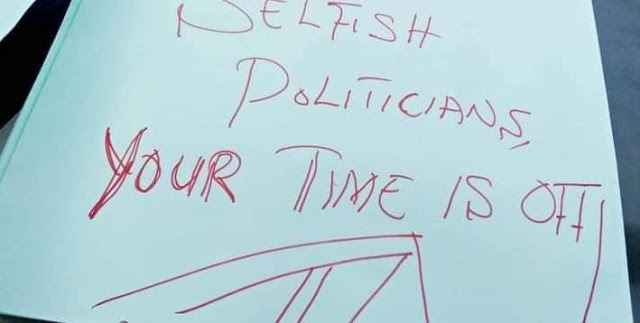 SELFISH
POLITICIANS,
YOUR TIME IS OFF